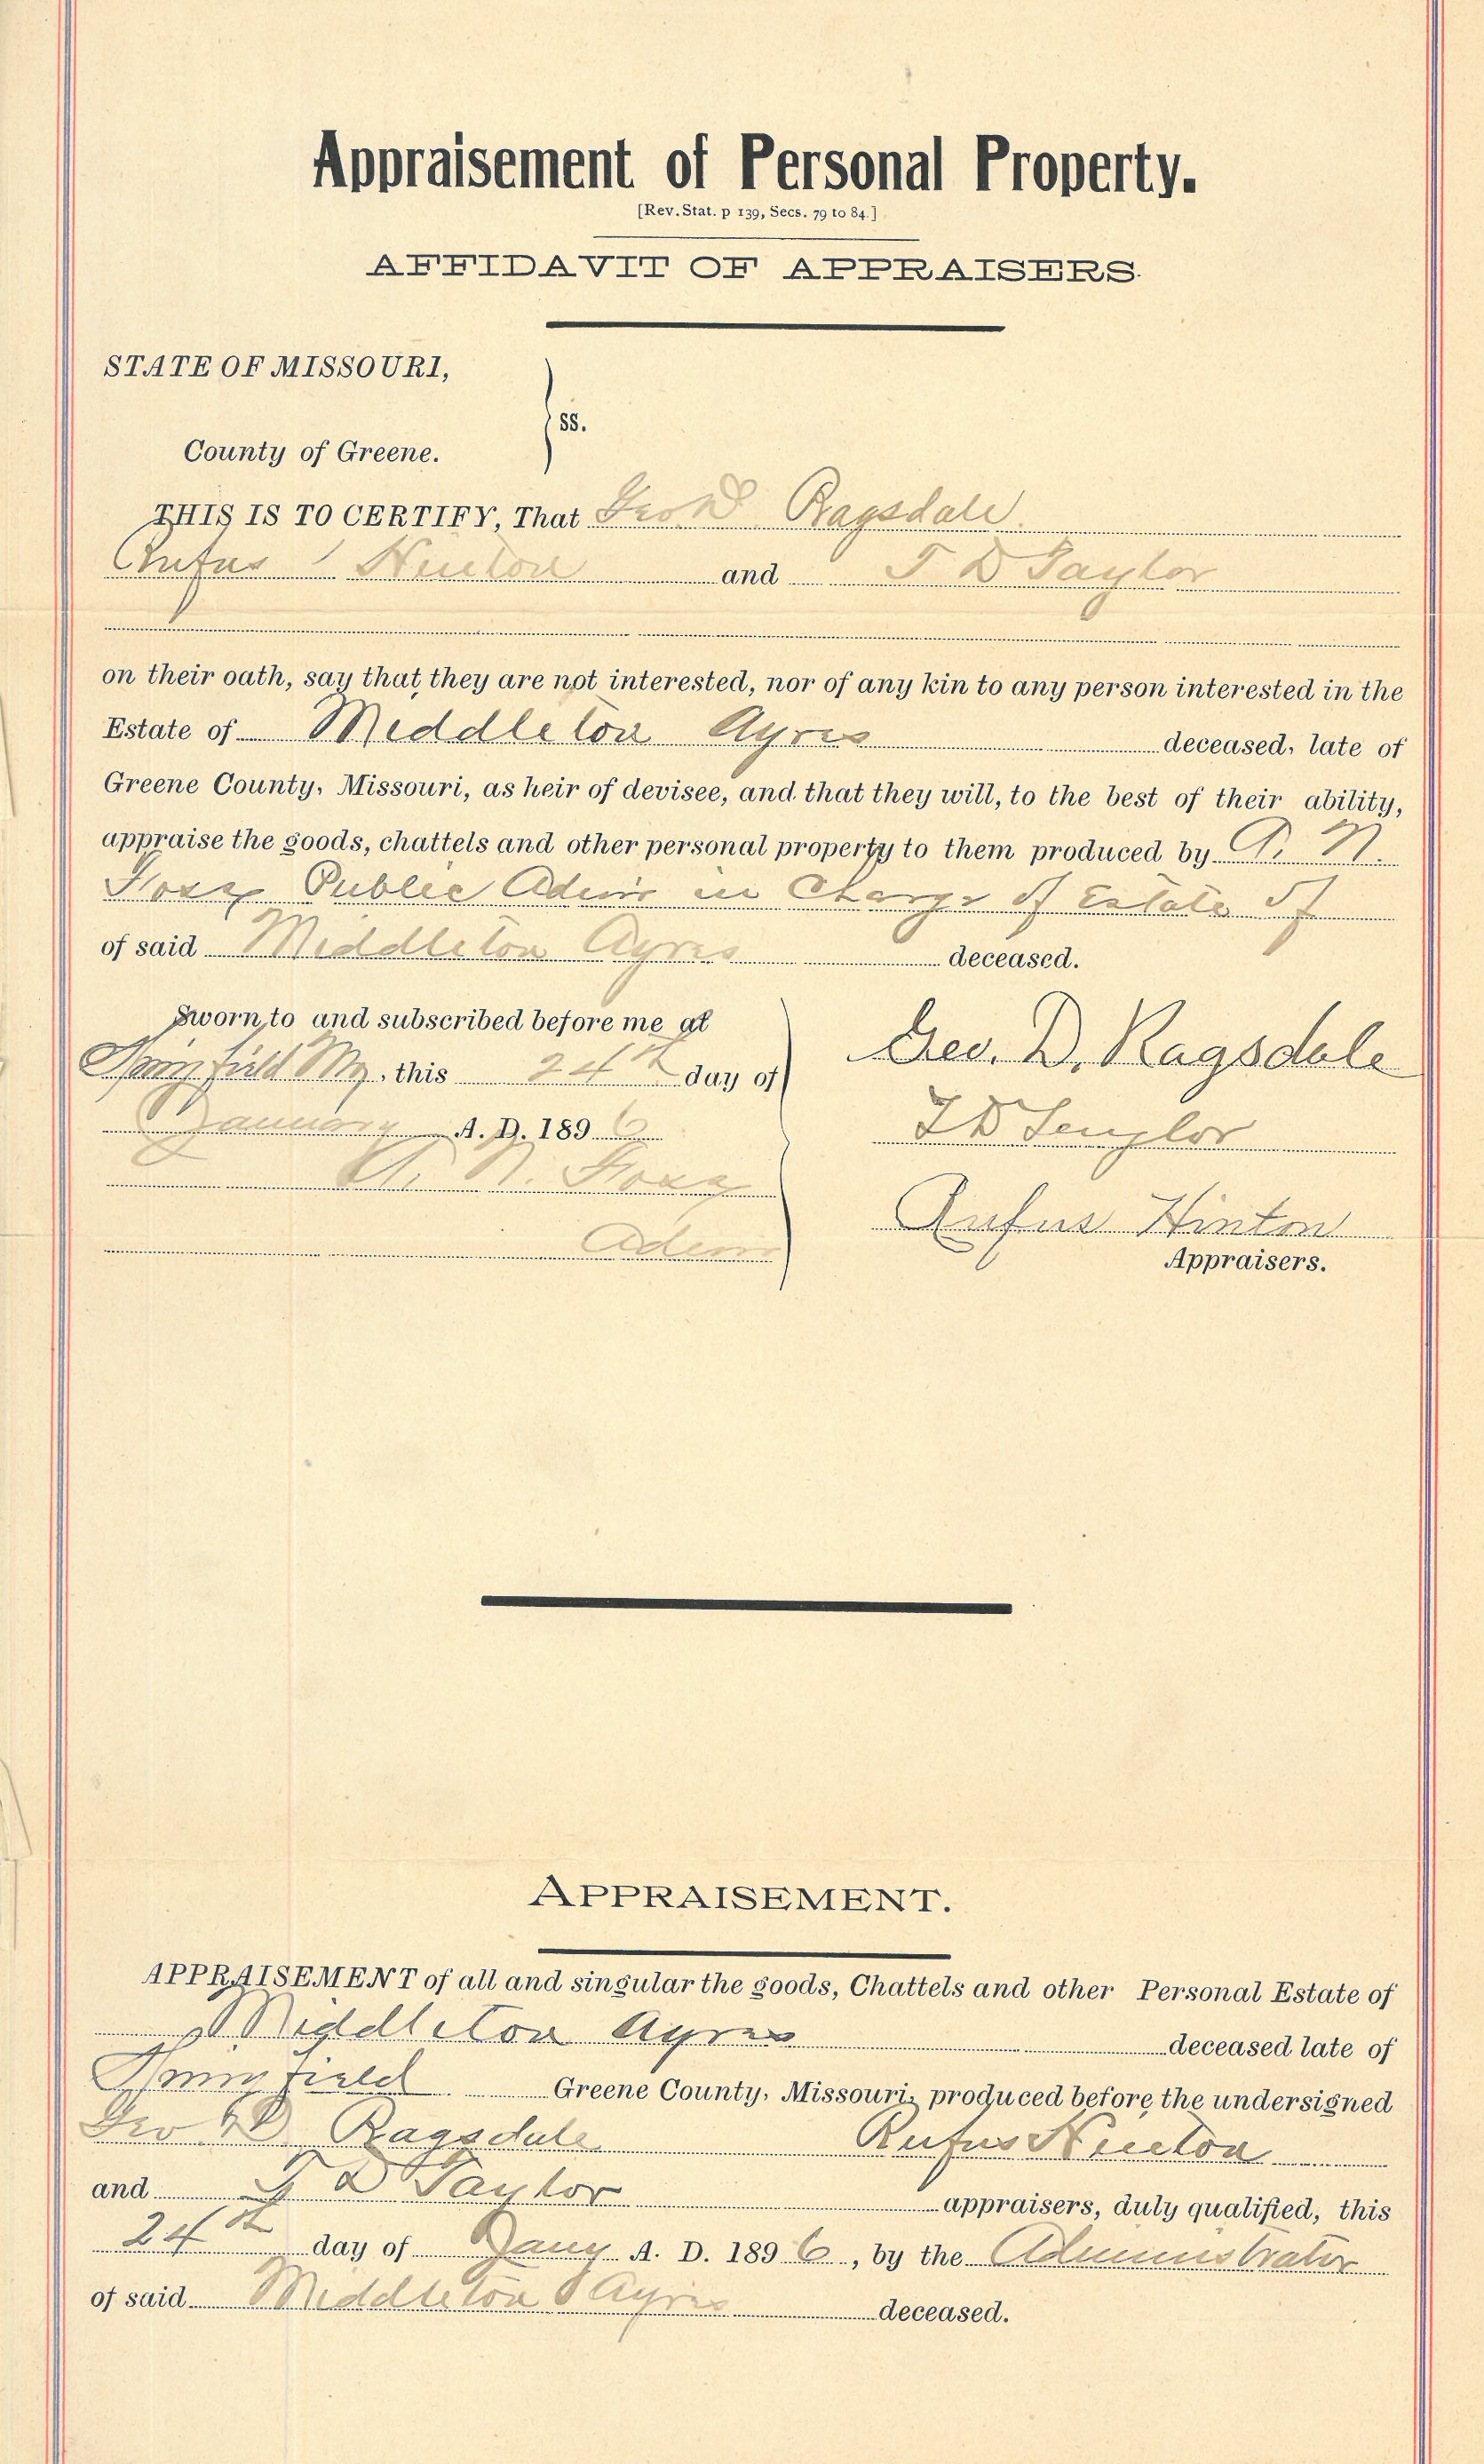 Appraisement of Personal Property.
[Rev. Stat. p 139, Secs. 79 to 84.]
AFFIDAVIT OF APPRAISERS.
STATE OF MISSOURI,
ss.
County of Greene.
THIS IS TO CERTIFY, That Geo D Ragsdale
Rufus Hinton and T D Taylor
on their oath, say that they are not interested, nor of any kin to any person interested in the
Estate of Middleton Ayres deceased, late of
Greene County, Missouri, as heir of devisee, and that they will, to the best of their ability,
appraise the goods, chattels and other personal property to them produced by N.
Public Admr in Charge of Estate of
of said Middleton Ayres deceased.
Sworn to and subscribed before me at
Springfield Mo, this 24th day of
January A. D. 1896
N.
Admr
Geo. D. Ragsdale
T D Taylor
Rufus Hinton
Appraisers.
APPRAISEMENT.
APPRAISEMENT of all and singular the goods, Chattels and other Personal Estate of
Middleton Ayres deceased late of
Springfield Greene County, Missouri, produced before the undersigned
Geo D Ragsdale Rufus Hinton
and T D Taylor appraisers, duly qualified, this
24th day of Jany A. D. 1896, by the Administrator
of said Middleton Ayres deceased.